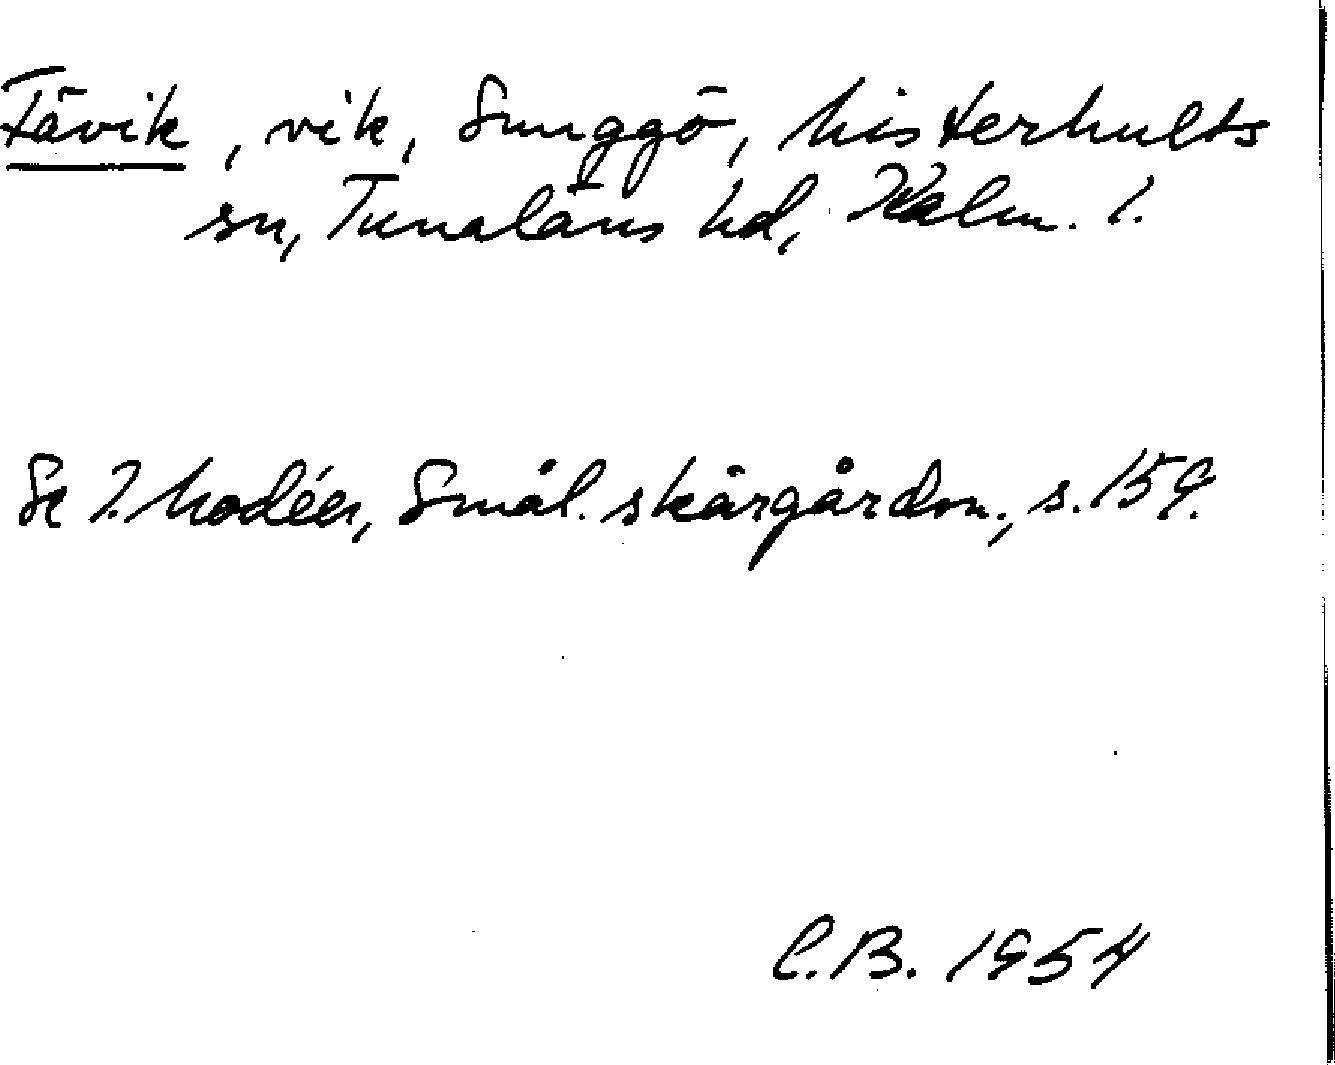 Fävik, vik, Smuggö, Misterhults
sn, Tunaläns hd, Kalm. l.
Se I. Modéer, Smål. skärgårdsn., s. 159.
C.B. 1954